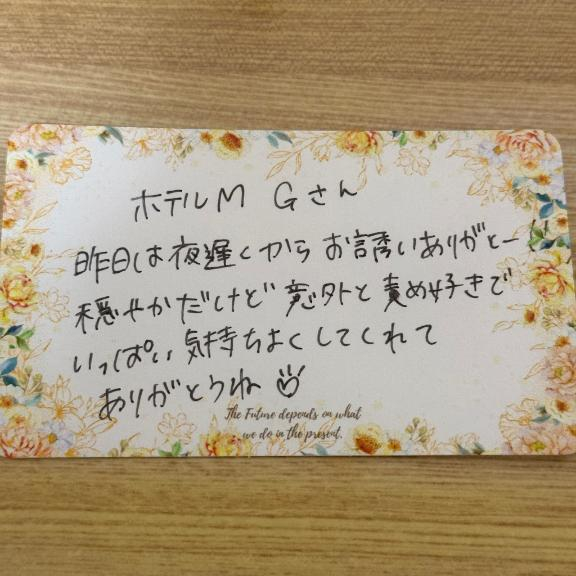 ホテルM Gさん
昨日は夜遅くから お誘いありがとー
穏やかだけど 意外と責め好きで
いっぱい気持ちよくしてくれて
ありがとうね
The Future depends on what
we do in the present.